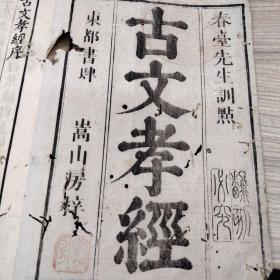 春臺先生訓點
古文孝經
東都書肆 嵩山房梓
古文孝經序